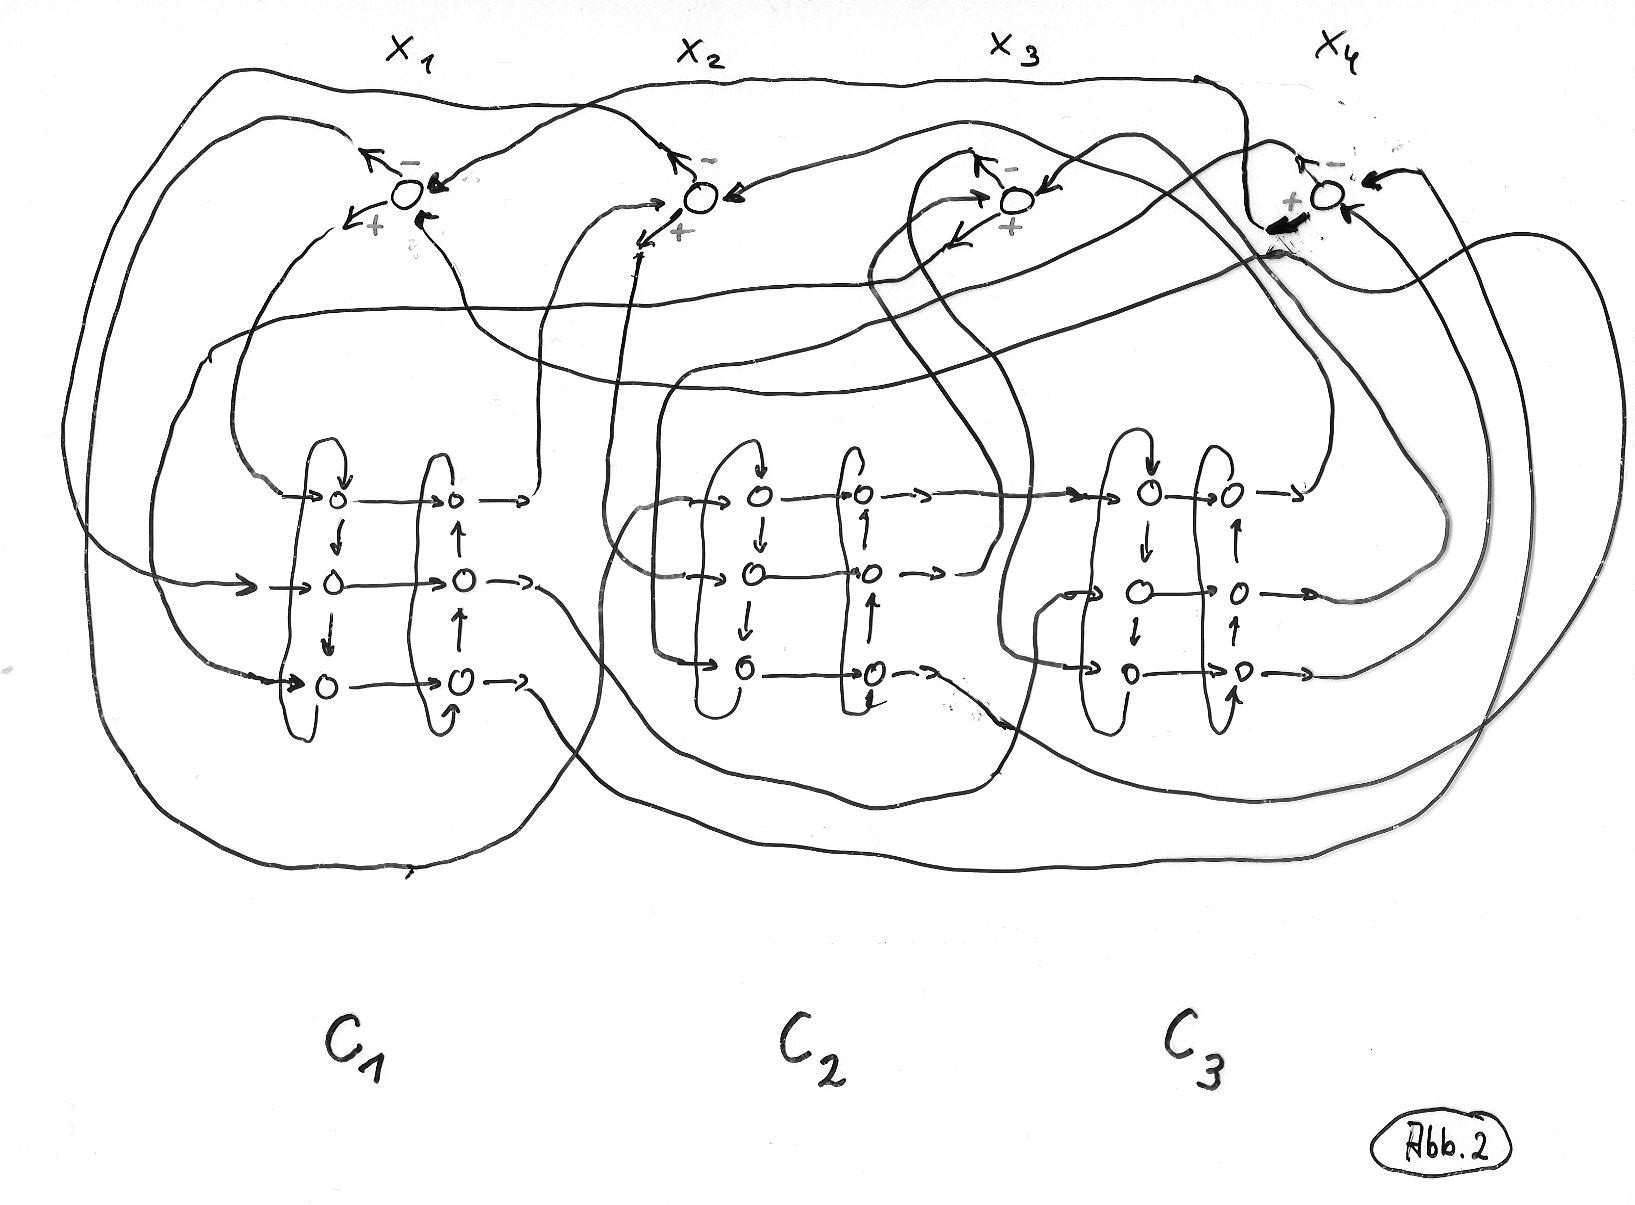 X₁ X₂ X₃ X₄
- - - -
+ + + +
C₁ C₂ C₃
Abb. 2